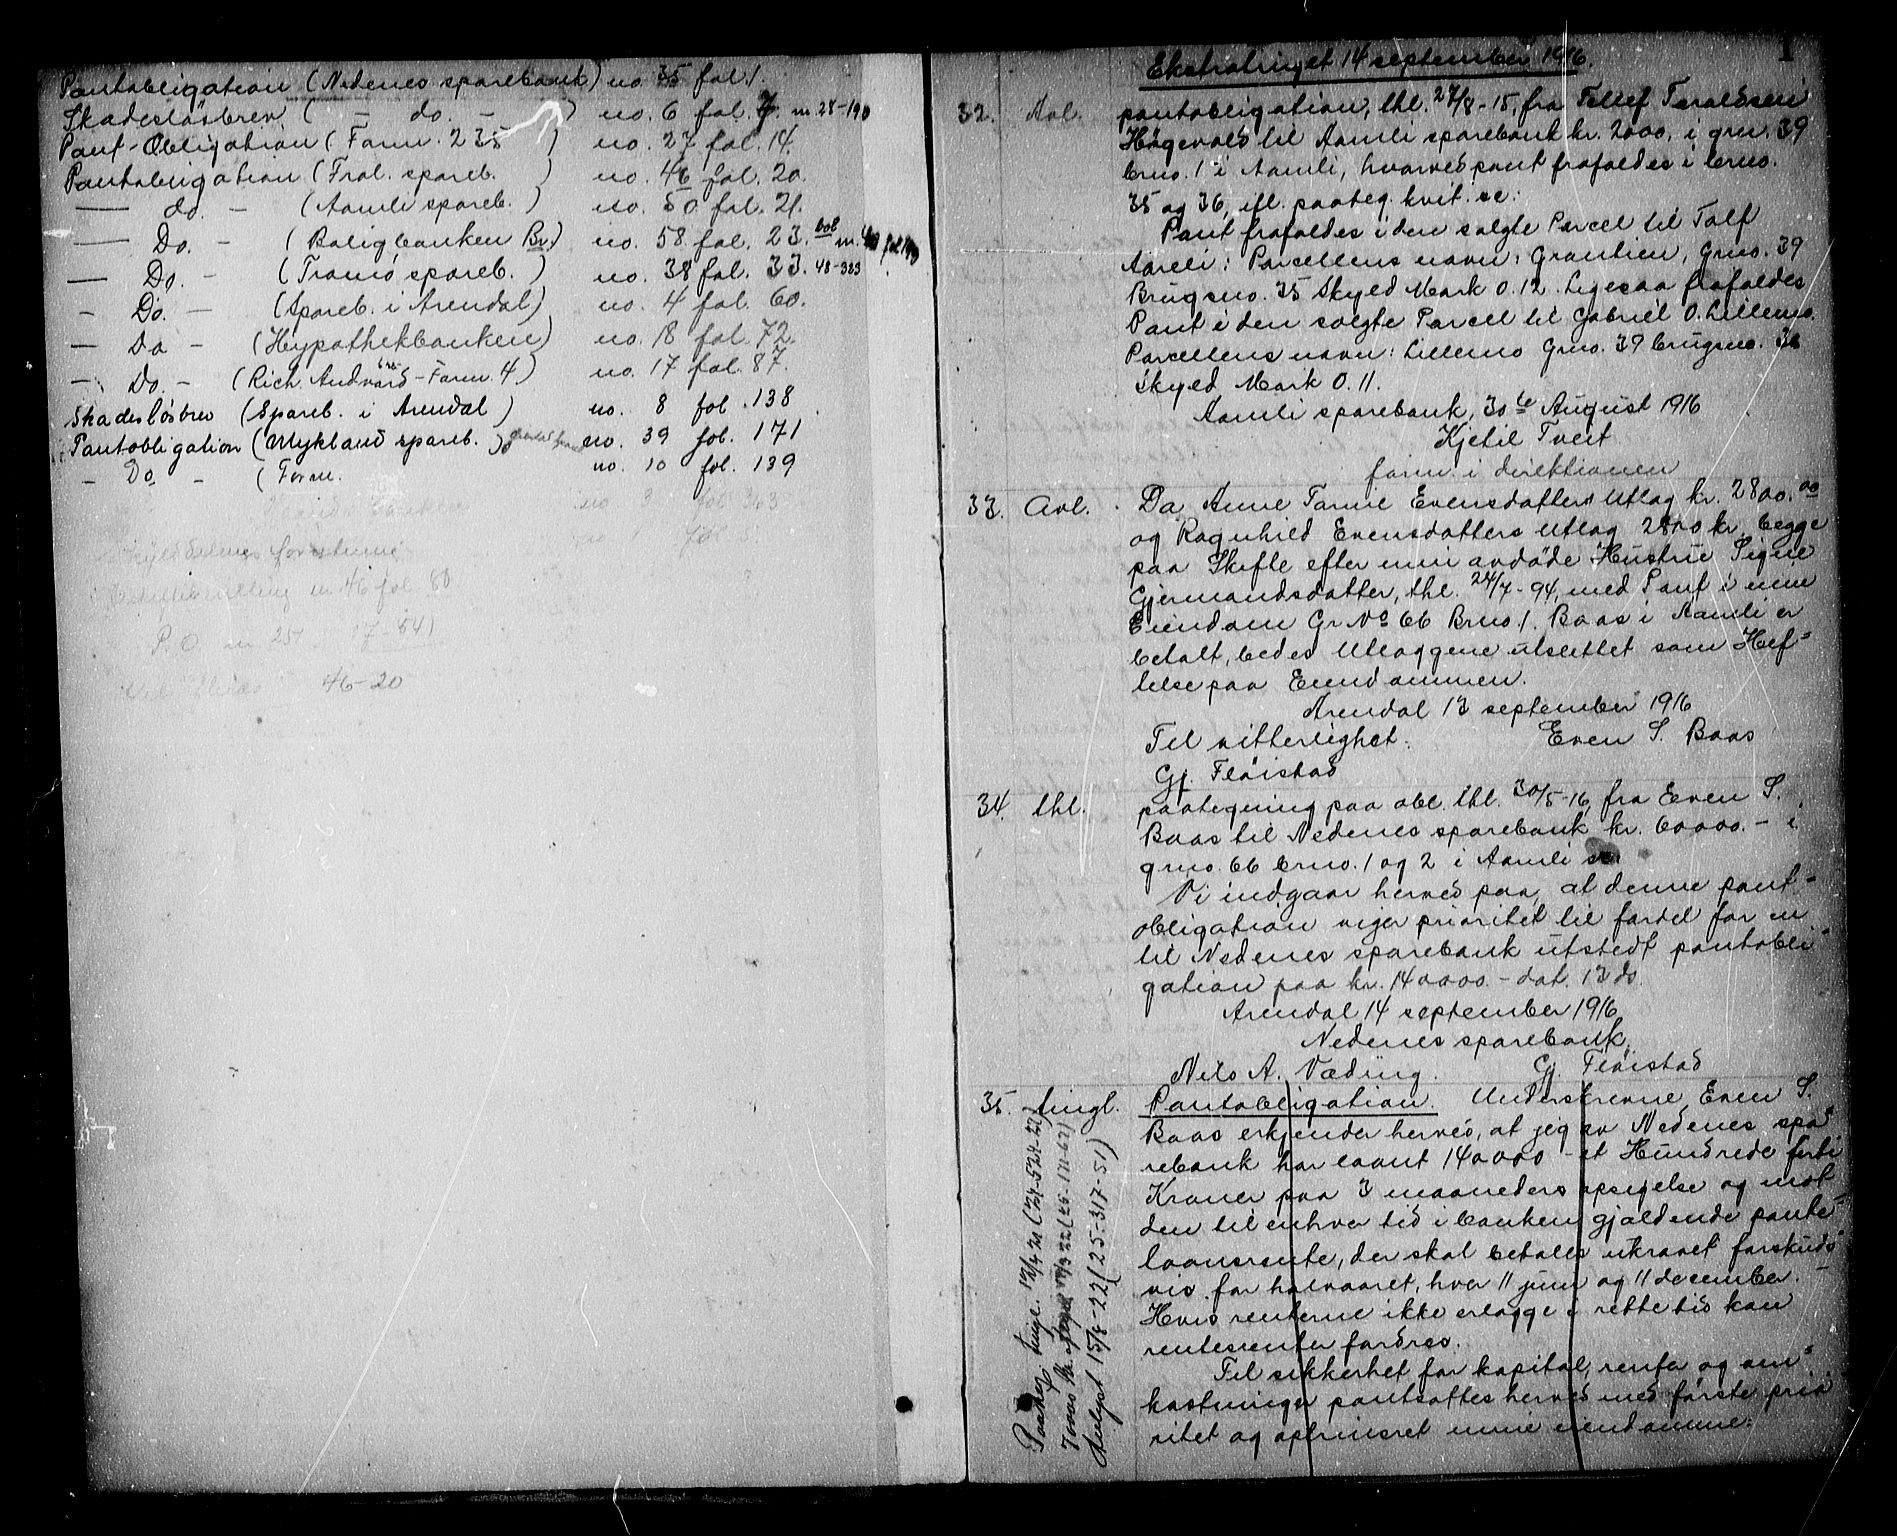 Pantobligation (Nedenes sparebank) no 35 fol 1.
Skadesløsbrev ( — do. — ) no. 6 fol. 7. m 28-190
Pant-Obligation (Form. 235 ) no. 27 fol. 14.
Pantobligation (Frol. spareb. ) no. 46 fol. 20.
— do. — (Aamli spareb. ) no. 50 fol. 21.
— Do. — (Boligbanken Br.) no. 58 fol. 23.
— Do. — (Tromø spareb. ) no. 38 fol. 33. 48-383
— Do. — (Spareb. i Arendal) no. 4 fol. 60.
— Do — (Hypothekbanken) no. 18 fol. 72.
— Do. — (Rich. Andvord - Form. 4) no. 17 fol. 87.
Skadesløsbrev (Spareb. i Arendal) no. 8 fol. 138
Pantobligation (Mykland spareb. ) no. 39 fol. 171
— Do — (Form. no. 10 fol. 139
no 3 fol 363
no 1 fol 5.
m 46 fol 80
P.O. m 25 17-541
46-20
1
Ekstratinget 14 september 1916.
32. Avl. pantobligation, thl. 27/8-15, fra Tellef Taraldsen
Høgevold til Aamli sparebank kr. 2000, i grn. 39
brno. 1 i Aamli, hvorved pant frafaldes i brno.
35 og 36, ifl. paateg. kvit. se:
Pant frafaldes i den solgte Parcel til Tolf
Aareli: Parcellens navn: Grantien, Grno. 39
Brugsno. 35 Skyld Mark 0.12. Ligesaa frafaldes
Pant i den solgte Parcel til Gabriel O. Lillemo.
Parcellens navn: Lillemo Grno. 39 brugsno. 36
Skyld Mark 0.11.
Aamli sparebank, 30te August 1916
Kjetil Tveit
form. i direktionen
33. Avl. Da Anne Tomine Evensdatters Utlag kr. 2800.00
og Ragnhild Evensdatters utlag 2800 kr begge
paa Skifte efter min avdøde Hustru Signe
Gjermundsdatter, thl. 24/7-94, med Pant i min
Eiendom Gr No 66 Brno. 1. Baas i Aamli er
betalt, bedes Utlæggene utslettet som Hef-
telse paa Eiendommen.
Arendal 13 september 1916
Til vitterlighet: Even S. Baas
Gj. Fløistad
34. thl. paategning paa obl. thl. 30/5-16, fra Even S.
Baas til Nedenes sparebank kr. 60000.- i
grno. 66 brno. 1 og 2 i Aamli se:
Vi indgaar herved paa, at denne pant-
obligation viger prioritet til fordel for en
til Nedenes sparebank utstedt pantobli-
gation paa kr. 140000.- dat. 13 ds.
Arendal 14 september 1916
Nedenes sparebank.
Nils A. Væding. Gj. Fløistad
35. tingl. Pantobligation. Underskrevne Even S.
Baas erkjender herved, at jeg av Nedenes spa-
rebank har laant 140000 - et Hundrede førti
Kroner paa 3 maaneders opsigelse og mot
den til enhver tid i banken gjældende pante-
laansrente, der skal betales ukrævet forskuds-
vis for halvaaret, hver 11 juni og 11 december.
Hvis renterne ikke erlægges i rette tid kan
rentesrenter fordres.
Til sikkerhet for kapital, renter og om-
kostninger pantsættes herved med første prio-
ritet og opfrinsret mine eiendomme:
Paateg. tingl. 12/4 21 (24-524-22)
22 (25-171-62)
Avlyst 15/8-22 (25-317-51)